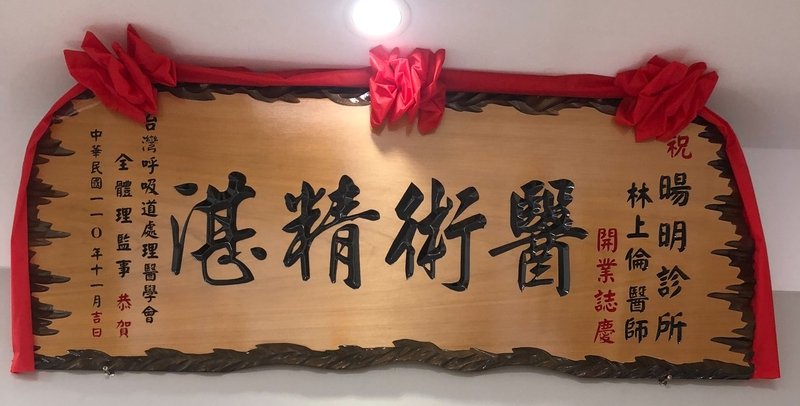 祝
暘明診所
林上倫醫師
開業誌慶
醫術精湛
台灣呼吸道處理醫學會
全體理監事 恭賀
中華民國一一0年十一月吉日